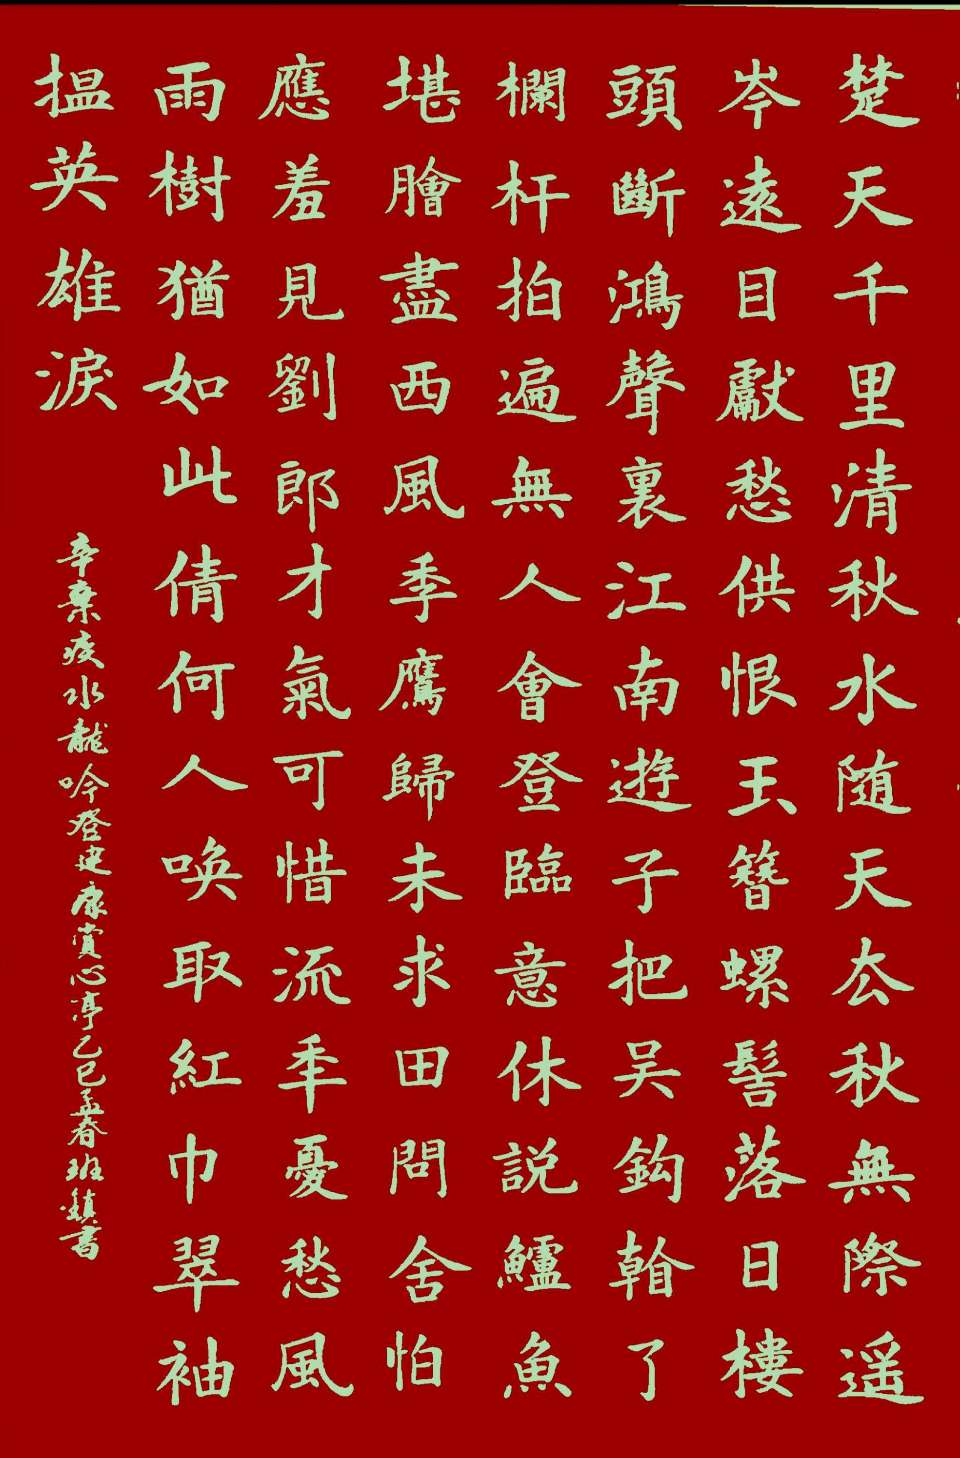 楚天千里清秋水随天厺秋無際遥
岑遠目獻愁供恨玉簪螺髻落日樓
頭斷鴻聲裏江南遊子把吴鈎看了
欄杆拍遍無人會登臨意休説鱸魚
堪膾盡西風季鷹歸未求田問舍怕
應羞見劉郎才氣可惜流秊憂愁風
雨樹猶如此倩何人唤取紅巾翠袖
揾英雄淚
辛棄疾水龍吟登建康賞心亭乙巳孟春班鎮書